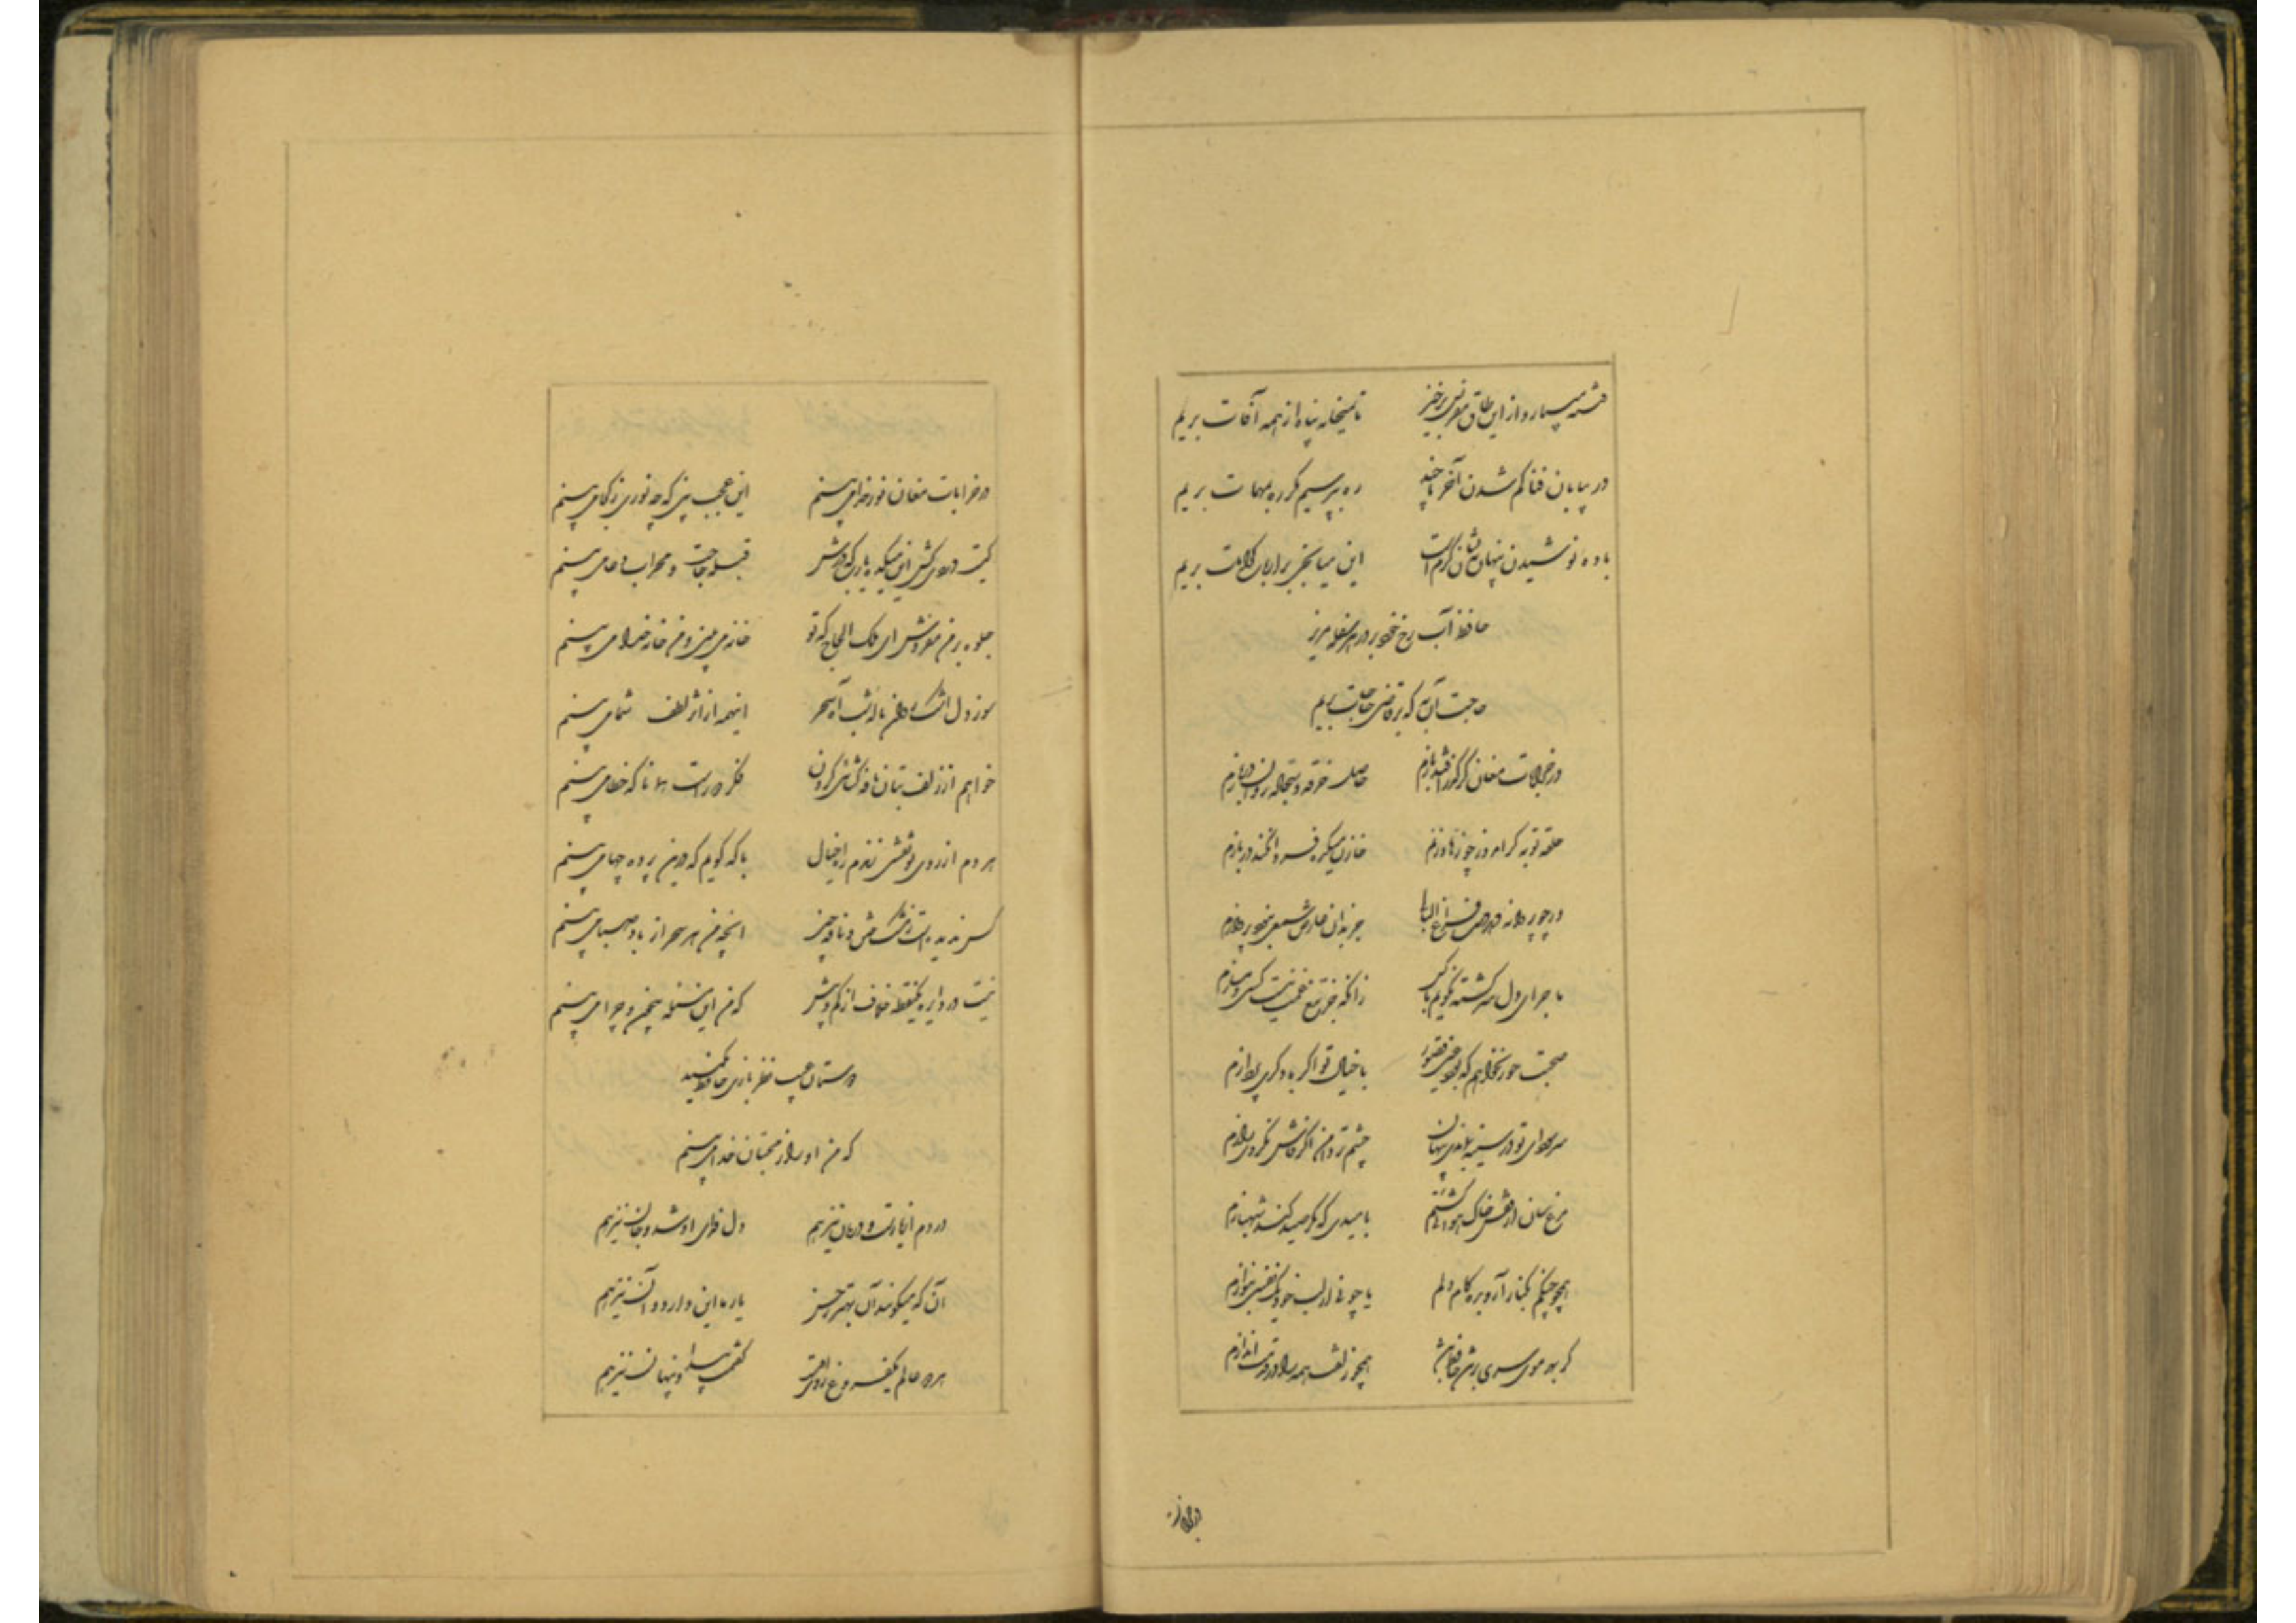 فتنه میبارد از این طاق مقرنس برخیز تا بمیخانه پناه از همه آفات بریم
در بیابان فنا گم شدن آخر تا چند ره بپرسیم مگر ره بمهمات بریم
باده نوشیدن پنهان نه نشان کرم است این میانجی بر ارباب کرامات بریم
حافظ آب رخ خود بر در هر سفله مریز
حاجت آن به که بر قاضی حاجات بریم
در خرابات مغان گر گذر افتد بازم حاصل خرقه و سجاده روان دربازم
حلقه توبه گر امروز چو زهاد زنم خازن میکده فردا نکند در بازم
ور چو پروانه دهد دست فراغ البالی جز بدان عارض شمعی نبود پروازم
ماجرای دل سرگشته نگویم با کس زانکه جز تیغ غمت نیست کسی دمسازم
صحبت حور نخواهم که بود عین قصور با خیال تو اگر با دگری پردازم
سر سودای تو در سینه بماندی پنهان چشم تر دامن اگر فاش نکردی رازم
مرغ سان از قفس خاک هوائی گشتم بامیدی که مگر صید کند شهبازم
همچو چنگم بکنار آر و بده کام دلم یا چو نی از لب خود یک نفسی بنوازم
گر بهر موی سری بر تن حافظ باشد همچو زلفت همه را در قدمت اندازم
در خرابات
در خرابات مغان نور خدا می بینم این عجب بین که چه نوری ز کجا می بینم
کیست دردی کش این میکده یا رب که درش قبله حاجت و محراب دعا می بینم
جلوه بر من مفروش ای ملک الحاج که تو خانه می بینی و من خانه خدا می بینم
سوز دل اشک روان ناله شب آه سحر اینهمه از اثر لطف شما می بینم
خواهم از زلف بتان نافه گشائی کردن فکر دور است همانا که خطا می بینم
هر دم از روی تو نقشی زندم راه خیال با که گویم که درین پرده چها می بینم
کس ندیده است ز مشک ختن و نافه چین آنچه من هر سحر از باد صبا می بینم
نیست در دایره یکنقطه خلاف از کم و بیش که من این مسئله بیچون و چرا می بینم
دوستان عیب نظر بازی حافظ مکنید
که من او را ز محبان خدا می بینم
دردم از یارست و درمان نیز هم دل فدای او شد و جان نیز هم
آن که میگویند آن بهتر ز حسن یار ما این دارد و آن نیز هم
هر دو عالم یک فروغ روی اوست گفتمت پیدا و پنهان نیز هم